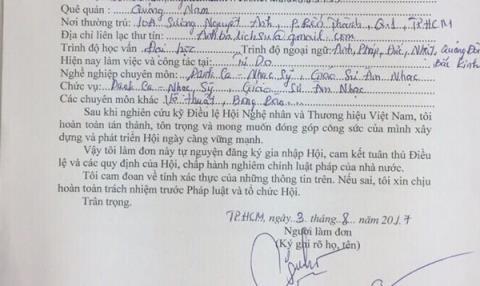 Quê quán : Quảng Nam
Nơi thường trú: 10A Sương Nguyệt Anh, P. Bến Thành, Q.1, TP.HCM
Địa chỉ liên lạc thư tín:
Trình độ học vấn: Đại học Trình độ ngoại ngữ: Anh, Pháp, Đức, Nhật, Quảng Đông
Bắc Kinh
Hiện nay làm việc và công tác tại: Tự Do
Nghề nghiệp chuyên môn: Danh Ca – Nhạc Sỹ, Giáo Sư Âm Nhạc
Chức vụ: Danh Ca – Nhạc Sỹ, Giáo Sư Âm Nhạc
Các chuyên môn khác: Võ thuật, Bóng Bàn
Sau khi nghiên cứu kỹ Điều lệ Hội Nghệ nhân và Thương hiệu Việt Nam, tôi
hoàn toàn tán thành, tôn trọng và mong muốn đóng góp công sức của mình xây dựng
và phát triển Hội ngày càng vững mạnh.
Vậy tôi làm đơn này tự nguyện đăng ký gia nhập Hội, cam kết tuân thủ Điều
lệ và các quy định của Hội, chấp hành nghiêm chỉnh luật pháp của nhà nước.
Tôi cam đoan về tính xác thực của những thông tin trên. Nếu sai, tôi xin chịu
hoàn toàn trách nhiệm trước Pháp luật và tổ chức Hội.
Trân trọng.
TP.HCM, ngày 3 tháng 8 năm 2017
Người làm đơn
(Ký ghi rõ họ, tên)